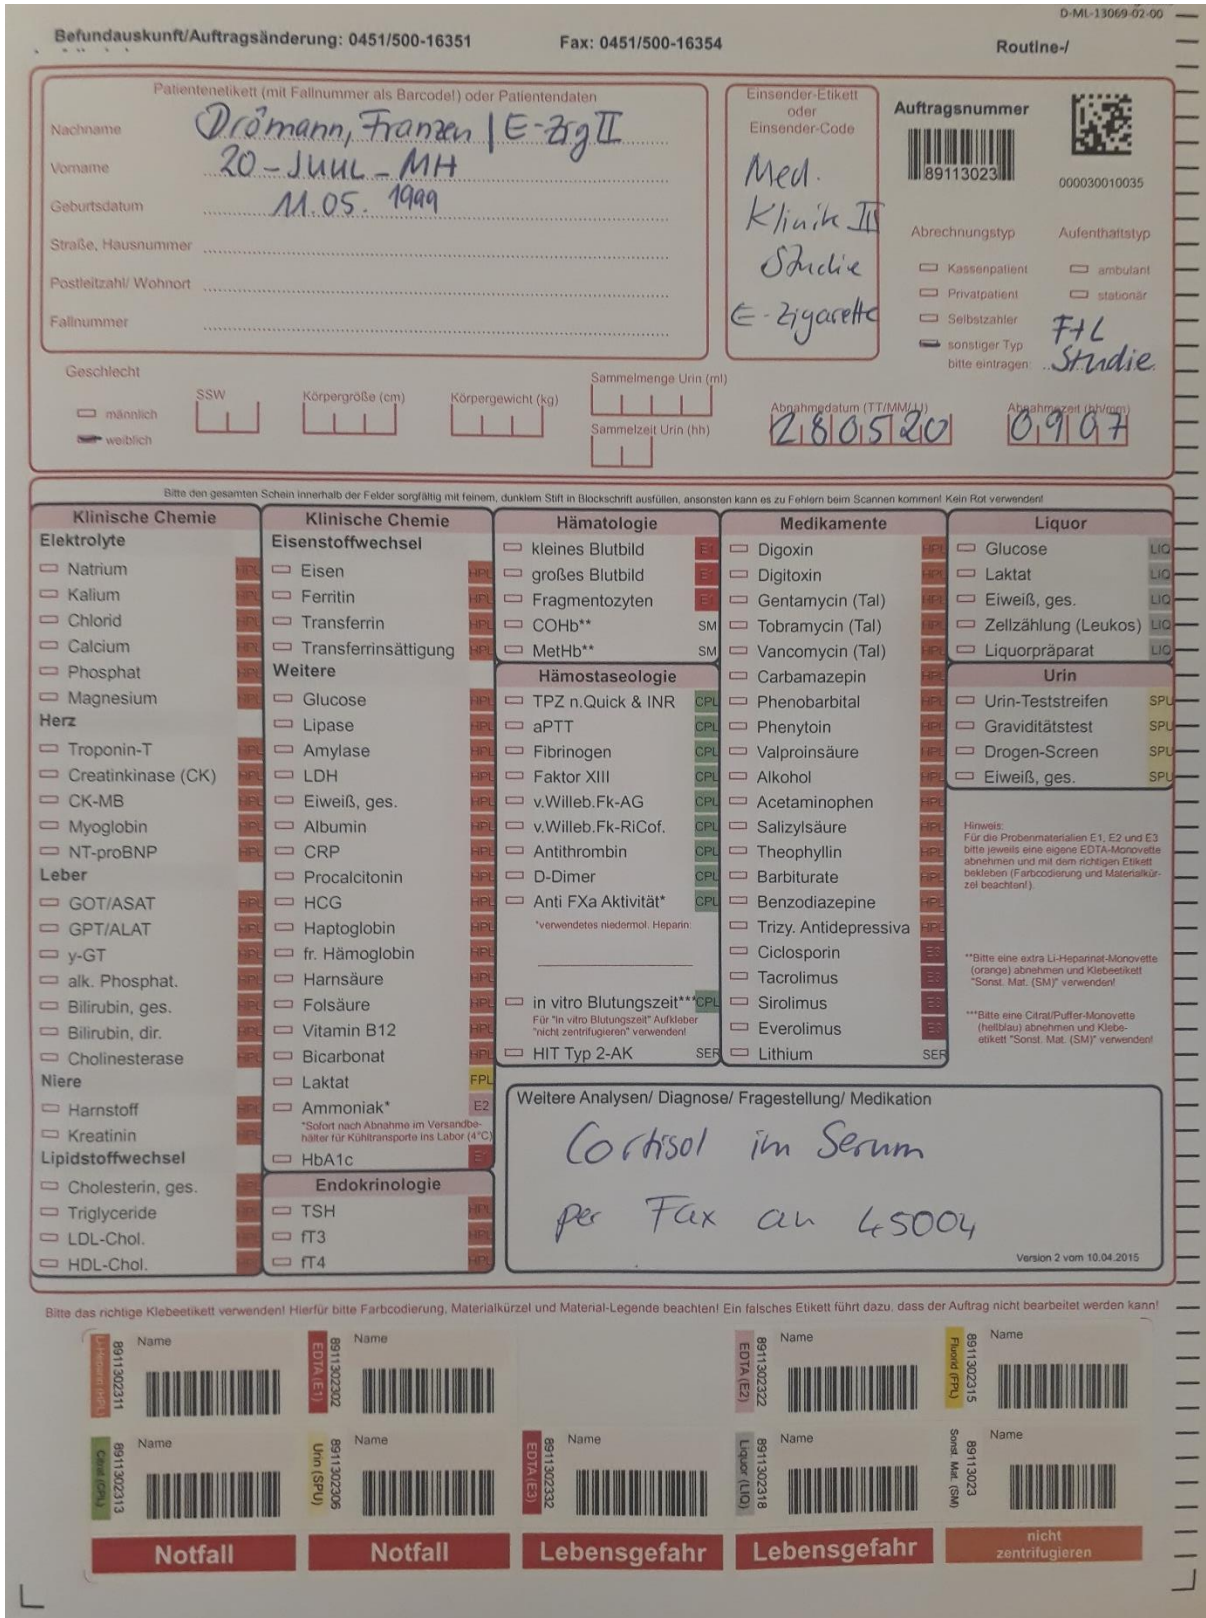 D-ML-13069-02-00
Befundauskunft/Auftragsänderung: 0451/500-16351 Fax: 0451/500-16354 Routine-/
Patientenetikett (mit Fallnummer als Barcode!) oder Patientendaten
Nachname Drömann, Franzen | E-Zig II
Vorname 20-JUUL-MH
Geburtsdatum 11.05.1999
Straße, Hausnummer
Postleitzahl/ Wohnort
Fallnummer
Einsender-Etikett
oder
Einsender-Code
Med.
Klinik III
Studie
E-Zigarette
Auftragsnummer
89113023
000030010035
Abrechnungstyp
Kassenpatient
Privatpatient
Selbstzahler
sonstiger Typ
bitte eintragen:
Aufenthaltstyp
ambulant
stationär
F+L
Studie
Geschlecht
männlich
weiblich
SSW
Körpergröße (cm)
Körpergewicht (kg)
Sammelmenge Urin (ml)
Sammelzeit Urin (hh)
Abnahmedatum (TT/MM/JJ)
280520
Abnahmezeit (hh/mm)
0907
Bitte den gesamten Schein innerhalb der Felder sorgfältig mit feinem, dunklem Stift in Blockschrift ausfüllen, ansonsten kann es zu Fehlern beim Scannen kommen! Kein Rot verwenden!
Klinische Chemie
Elektrolyte
Natrium HPL
Kalium HPL
Chlorid HPL
Calcium HPL
Phosphat HPL
Magnesium HPL
Herz
Troponin-T HPL
Creatinkinase (CK) HPL
CK-MB HPL
Myoglobin HPL
NT-proBNP HPL
Leber
GOT/ASAT HPL
GPT/ALAT HPL
y-GT HPL
alk. Phosphat. HPL
Bilirubin, ges. HPL
Bilirubin, dir. HPL
Cholinesterase HPL
Niere
Harnstoff HPL
Kreatinin HPL
Lipidstoffwechsel
Cholesterin, ges. HPL
Triglyceride HPL
LDL-Chol. HPL
HDL-Chol. HPL
Klinische Chemie
Eisenstoffwechsel
Eisen HPL
Ferritin HPL
Transferrin HPL
Transferrinsättigung HPL
Weitere
Glucose HPL
Lipase HPL
Amylase HPL
LDH HPL
Eiweiß, ges. HPL
Albumin HPL
CRP HPL
Procalcitonin HPL
HCG HPL
Haptoglobin HPL
fr. Hämoglobin HPL
Harnsäure HPL
Folsäure HPL
Vitamin B12 HPL
Bicarbonat HPL
Laktat FPL
Ammoniak* E2
*Sofort nach Abnahme im Versandbe-
hälter für Kühltransporte ins Labor (4°C)
HbA1c E1
Endokrinologie
TSH HPL
fT3 HPL
fT4 HPL
Hämatologie
kleines Blutbild E1
großes Blutbild E1
Fragmentozyten E1
COHb** SM
MetHb** SM
Hämostaseologie
TPZ n.Quick & INR CPL
aPTT CPL
Fibrinogen CPL
Faktor XIII CPL
v.Willeb.Fk-AG CPL
v.Willeb.Fk-RiCof. CPL
Antithrombin CPL
D-Dimer CPL
Anti FXa Aktivität* CPL
*verwendetes niedermol. Heparin:
in vitro Blutungszeit*** CPL
Für "in vitro Blutungszeit" Aufkleber
"nicht zentrifugieren" verwenden!
HIT Typ 2-AK SER
Medikamente
Digoxin HPL
Digitoxin HPL
Gentamycin (Tal) HPL
Tobramycin (Tal) HPL
Vancomycin (Tal) HPL
Carbamazepin HPL
Phenobarbital HPL
Phenytoin HPL
Valproinsäure HPL
Alkohol HPL
Acetaminophen HPL
Salizylsäure HPL
Theophyllin HPL
Barbiturate HPL
Benzodiazepine HPL
Trizy. Antidepressiva HPL
Ciclosporin E3
Tacrolimus E3
Sirolimus E3
Everolimus E3
Lithium SER
Liquor
Glucose LIQ
Laktat LIQ
Eiweiß, ges. LIQ
Zellzählung (Leukos) LIQ
Liquorpräparat LIQ
Urin
Urin-Teststreifen SPU
Graviditätstest SPU
Drogen-Screen SPU
Eiweiß, ges. SPU
Hinweis:
Für die Probenmaterialien E1, E2 und E3
bitte jeweils eine eigene EDTA-Monovette
abnehmen und mit dem richtigen Etikett
bekleben (Farbcodierung und Materialkür-
zel beachten!).
**Bitte eine extra Li-Heparinat-Monovette
(orange) abnehmen und Klebeetikett
"Sonst. Mat. (SM)" verwenden!
***Bitte eine Citrat/Puffer-Monovette
(hellblau) abnehmen und Klebe-
etikett "Sonst. Mat. (SM)" verwenden!
Weitere Analysen/ Diagnose/ Fragestellung/ Medikation
Cortisol im Serum
per Fax an 45004
Version 2 vom 10.04.2015
Bitte das richtige Klebeetikett verwenden! Hierfür bitte Farbcodierung, Materialkürzel und Material-Legende beachten! Ein falsches Etikett führt dazu, dass der Auftrag nicht bearbeitet werden kann!
Li-Heparin (HPL) 8911302311 Name
EDTA (E1) 8911302302 Name
EDTA (E2) 8911302322 Name
Fluorid (FPL) 8911302315 Name
Citrat (CPL) 8911302313 Name
Urin (SPU) 8911302306 Name
EDTA (E3) 8911302332 Name
Liquor (LIQ) 8911302318 Name
Sonst. Mat. (SM) 89113023 Name
Notfall
Notfall
Lebensgefahr
Lebensgefahr
nicht
zentrifugieren